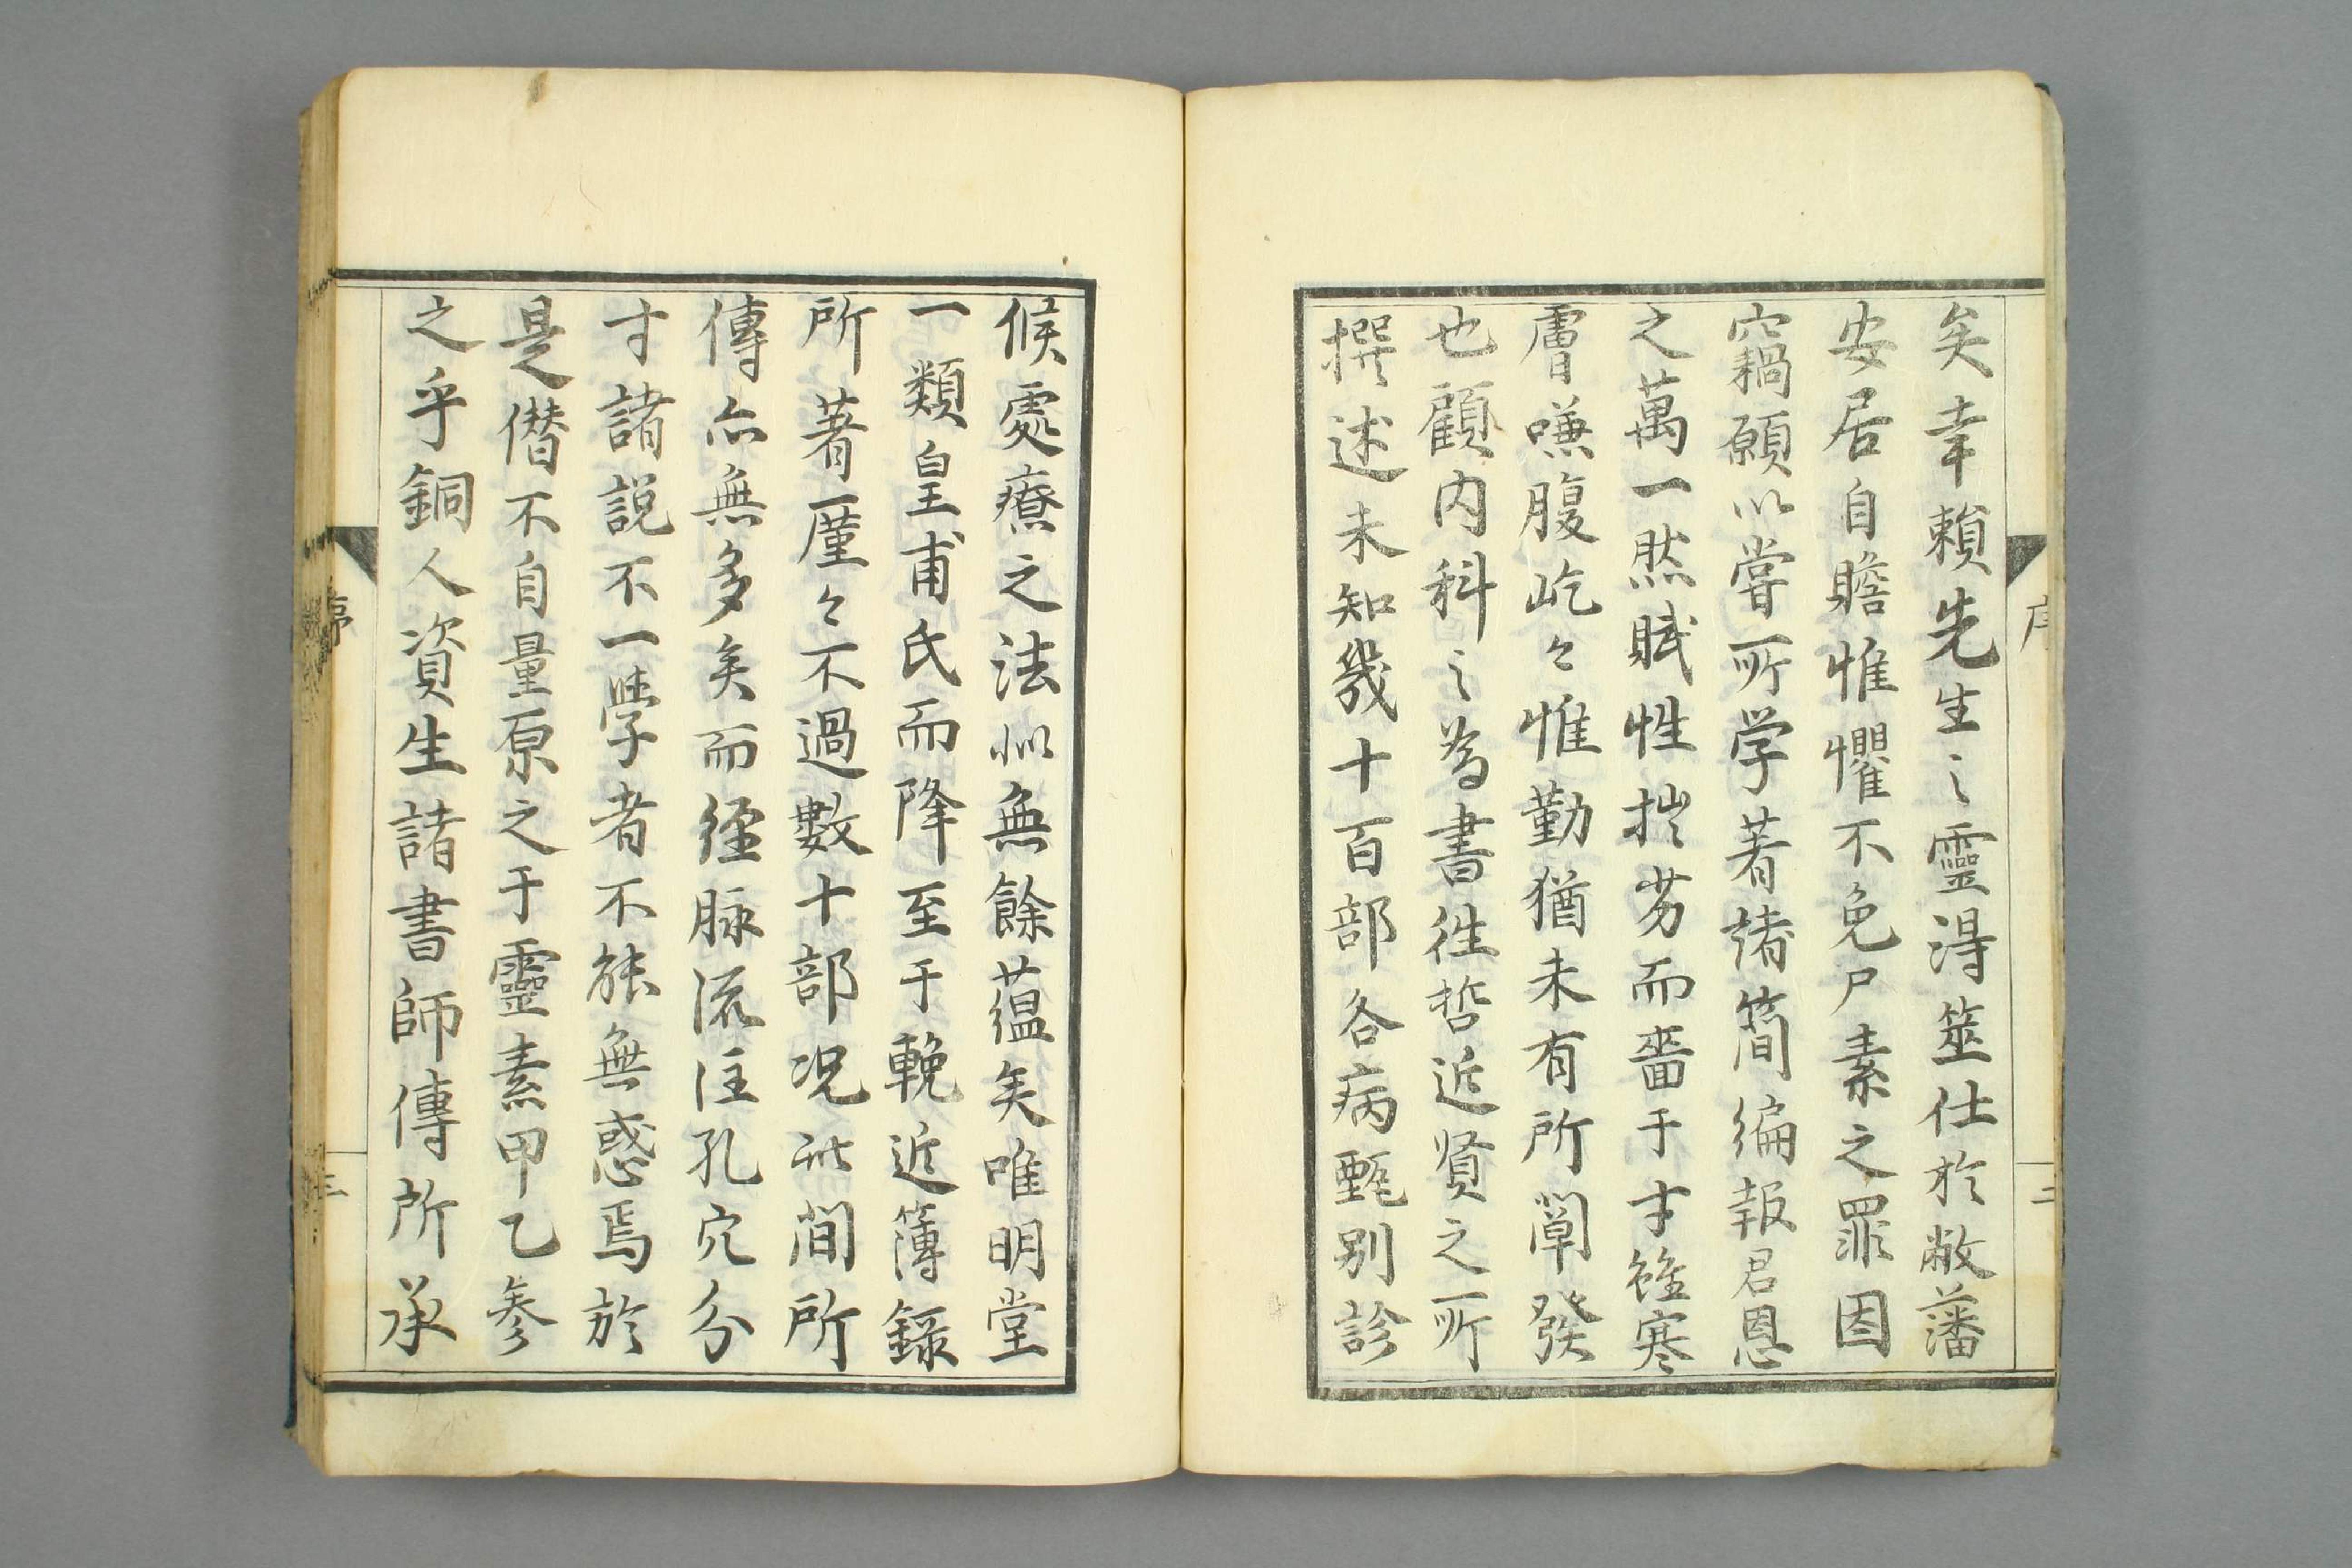 矣幸賴先生之靈淂筮仕於敝藩
安居自贍惟懼不免尸素之罪因
竊願以嘗所学著諸簡編報君恩
之萬一然賦性拙劣而嗇于才雖寒
膚嗛腹屹々惟勤猶未有所闡發
也顧内科之為書徃哲近贤之所
撰述未知幾十百部各病甄别診
候處療之法似無餘蕴矣唯明堂
一類皇甫氏而降至于輓近簿録
所著厪々不過數十部况此間所
傳亦無多矣而經脉流注孔穴分
寸諸説不一學者不能無惑焉於
是僭不自量原之于靈素甲乙参
之乎銅人資生諸書師傳所承
序
序
三